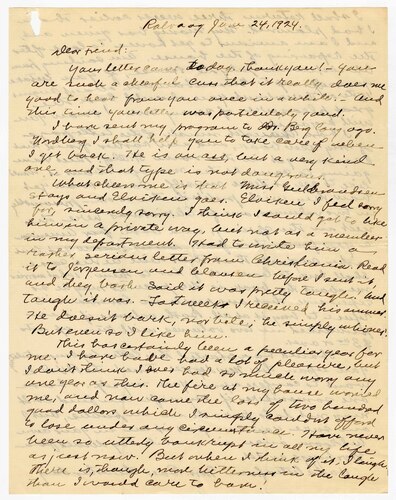 Jan 24, 1924.
Dear Friend:
Your letter came today. Thank you! - You
are such a cheerful cuss that it really does me
good to hear from you once in a while. - And
this time your letter was particularly good.
I have sent my program to Dr. long ago.
I shall help you to take care of when
I get back. He is an ass, but a very kind
one, and that type is not dangerous.
What cheers me is that Miss Guldbrandsen
stays and Elviken goes. Elviken I feel sorry
for, sincerely sorry. I think I could get to like
him in a private way, but not as a member
in my department. Had to write him a
rather serious letter from Christiania. Read
it to Jorgensen and Clausen before I sent it,
and they both said it was pretty tough. And
tough it was. I received his answer.
He doesn't bark, nor bite, he simply whines.
But even so I like him.
This has certainly been a peculiar year for
me. I have had a lot of pleasure, but
I don't think I ever had so much worry any
one year as this. The fire at my house worried
me, and now came the loss of two hundred
good dollars which I simply couldn't afford
to lose under any circumstance. Have never
been so utterly bankrupt in all my life
as just now. But when I think of it I laugh,
there is, though, more bitterness in the laugh
than I would care to have!